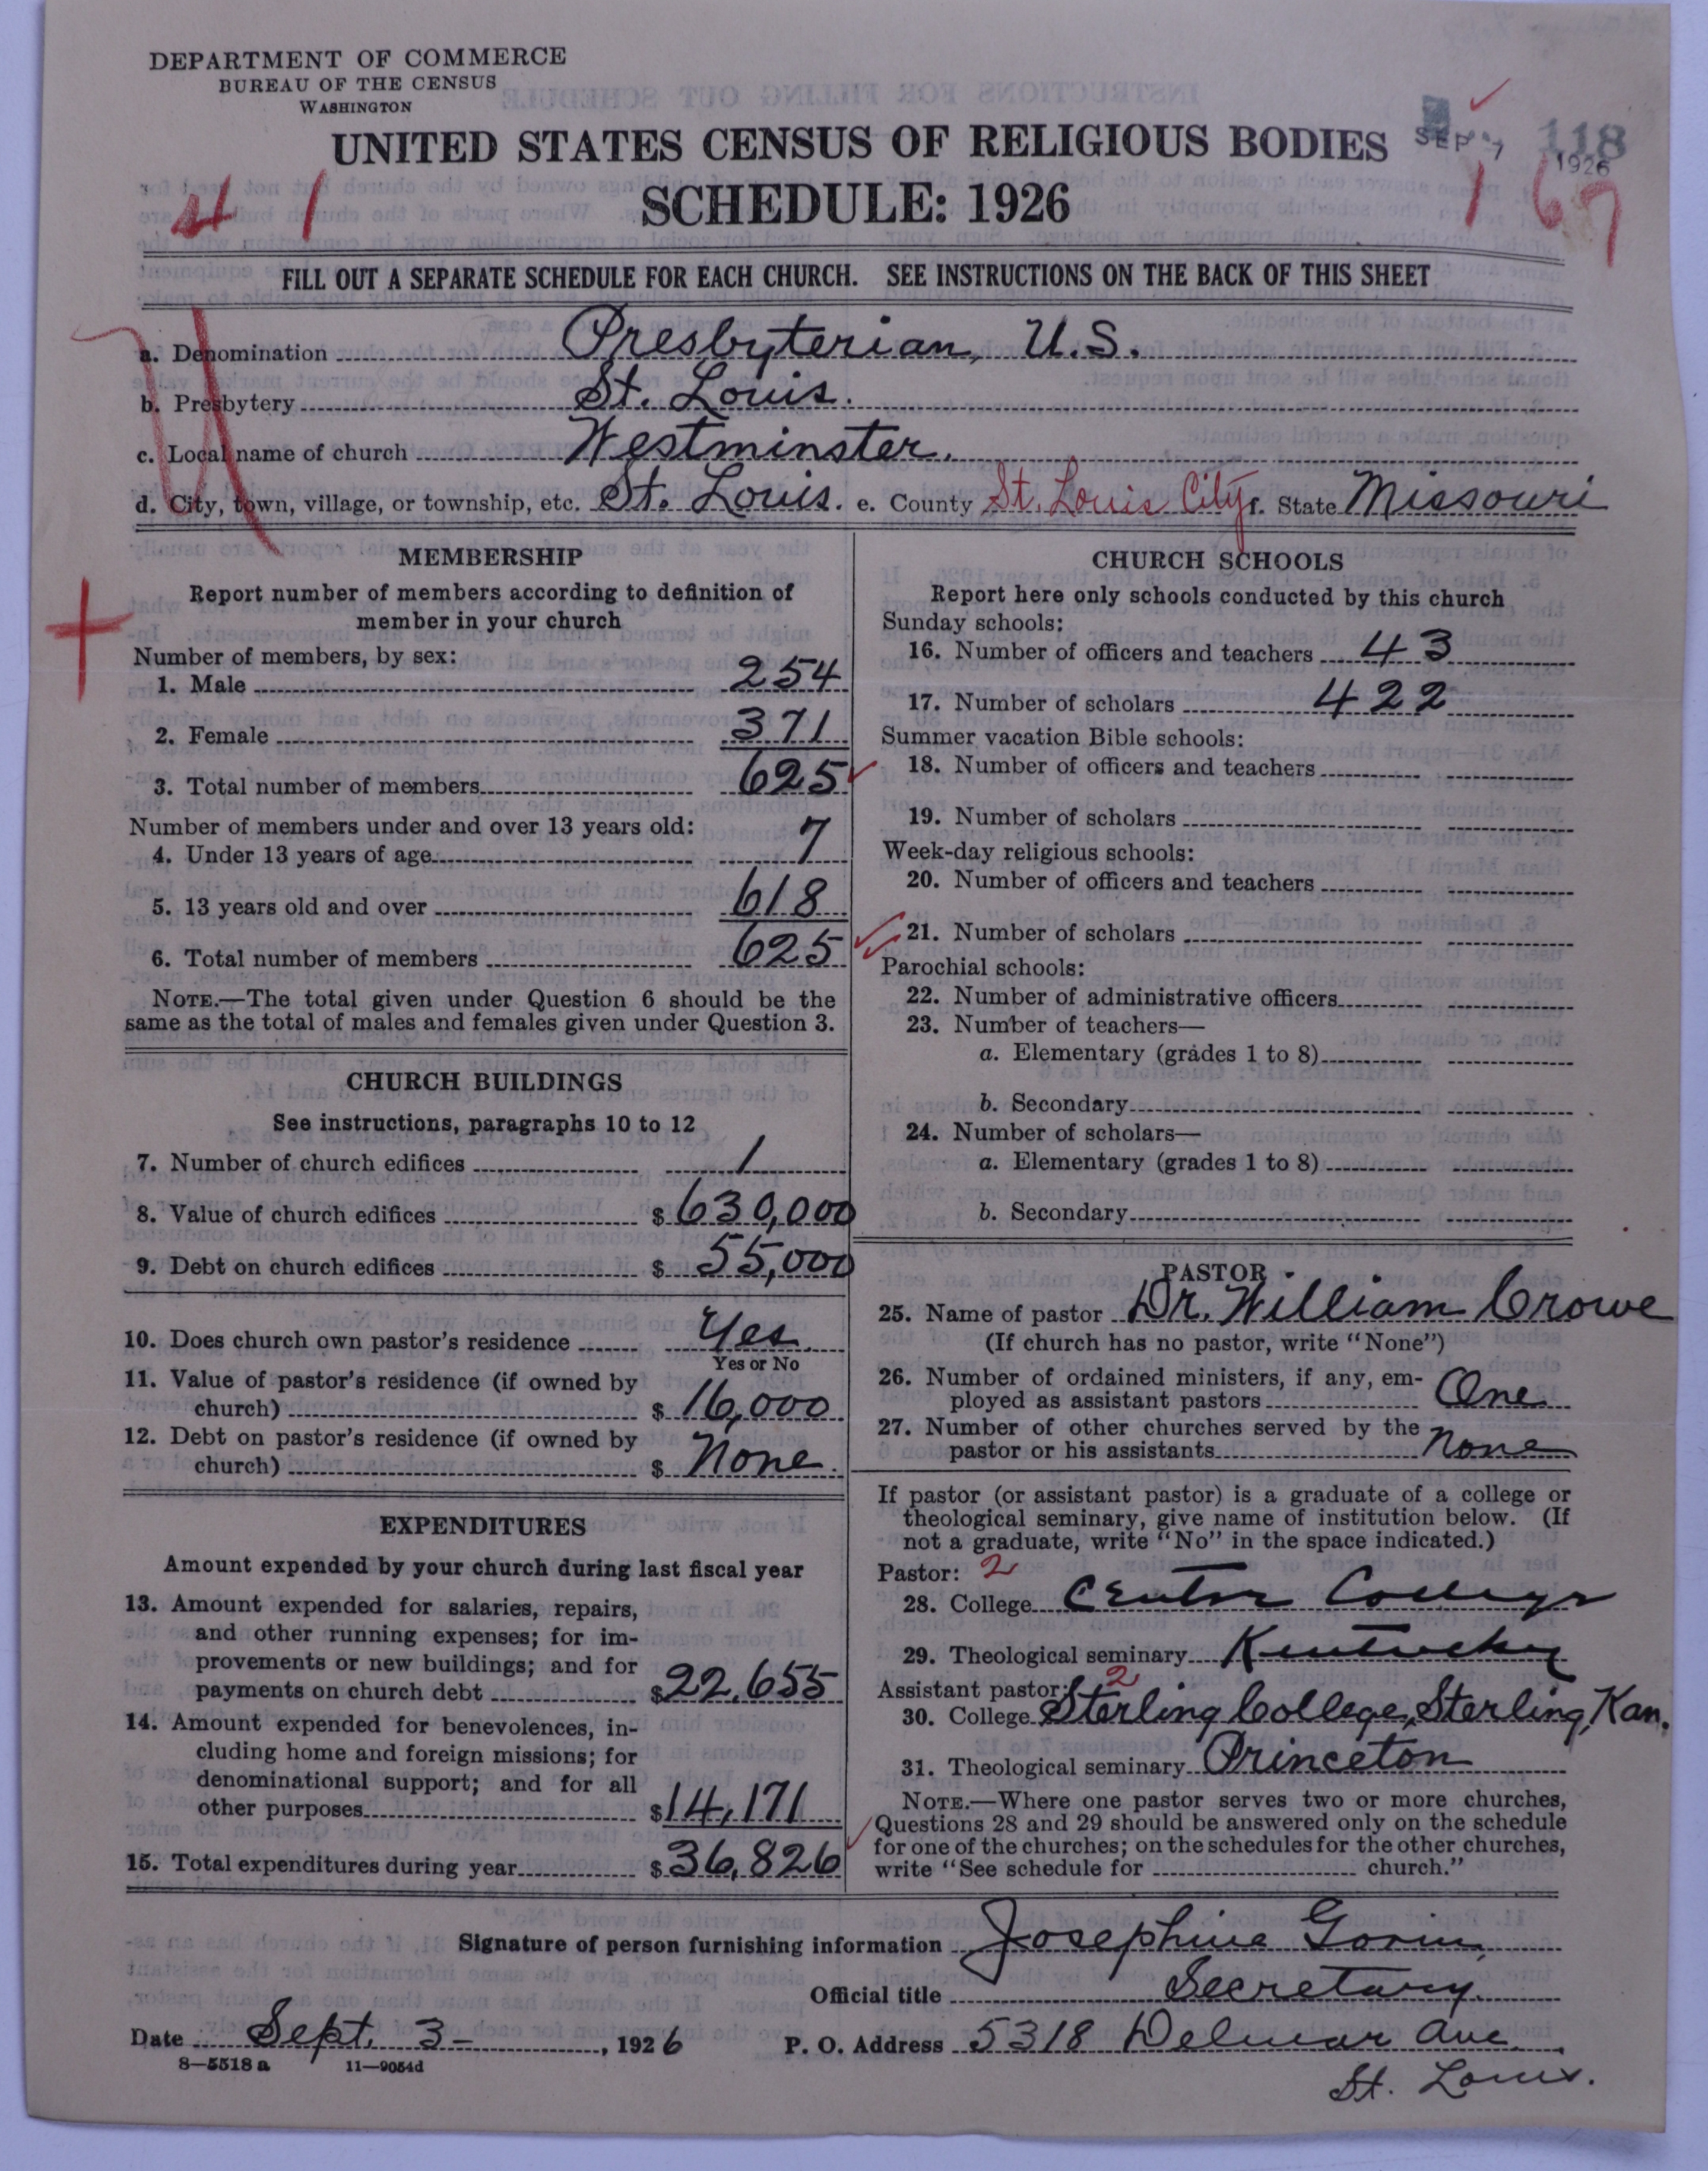 DEPARTMENT OF COMMERCE
BUREAU OF THE CENSUS
WASHINGTON
UNITED STATES CENSUS OF RELIGIOUS BODIES
SCHEDULE: 1926
SEP 7 1926
118
4 1
1 67
FILL OUT A SEPARATE SCHEDULE FOR EACH CHURCH. SEE INSTRUCTIONS ON THE BACK OF THIS SHEET
a. Denomination Presbyterian, U.S.
b. Presbytery St. Louis.
c. Local name of church Westminster.
d. City, town, village, or township, etc. St. Louis. e. County St. Louis City f. State Missouri
MEMBERSHIP
Report number of members according to definition of
member in your church
Number of members, by sex:
1. Male 254
2. Female 371
3. Total number of members 625
Number of members under and over 13 years old:
4. Under 13 years of age 7
5. 13 years old and over 618
6. Total number of members 625
NOTE.—The total given under Question 6 should be the
same as the total of males and females given under Question 3.
CHURCH BUILDINGS
See instructions, paragraphs 10 to 12
7. Number of church edifices 1
8. Value of church edifices $ 630,000
9. Debt on church edifices $ 55,000
10. Does church own pastor's residence Yes.
Yes or No
11. Value of pastor's residence (if owned by
church) $ 16,000
12. Debt on pastor's residence (if owned by
church) $ None.
EXPENDITURES
Amount expended by your church during last fiscal year
13. Amount expended for salaries, repairs,
and other running expenses; for im-
provements or new buildings; and for
payments on church debt $ 22,655
14. Amount expended for benevolences, in-
cluding home and foreign missions; for
denominational support; and for all
other purposes $ 14,171
15. Total expenditures during year $ 36,826
CHURCH SCHOOLS
Report here only schools conducted by this church
Sunday schools:
16. Number of officers and teachers 43
17. Number of scholars 422
Summer vacation Bible schools:
18. Number of officers and teachers
19. Number of scholars
Week-day religious schools:
20. Number of officers and teachers
21. Number of scholars
Parochial schools:
22. Number of administrative officers
23. Number of teachers—
a. Elementary (grades 1 to 8)
b. Secondary
24. Number of scholars—
a. Elementary (grades 1 to 8)
b. Secondary
PASTOR
25. Name of pastor Dr. William Crowe
(If church has no pastor, write "None")
26. Number of ordained ministers, if any, em-
ployed as assistant pastors One
27. Number of other churches served by the
pastor or his assistants None
If pastor (or assistant pastor) is a graduate of a college or
theological seminary, give name of institution below. (If
not a graduate, write "No" in the space indicated.)
Pastor: 2
28. College Centre College
29. Theological seminary Kentucky
Assistant pastor: 2
30. College Sterling College, Sterling, Kan.
31. Theological seminary Princeton
NOTE.—Where one pastor serves two or more churches,
Questions 28 and 29 should be answered only on the schedule
for one of the churches; on the schedules for the other churches,
write "See schedule for church."
Signature of person furnishing information Josephine
Official title Secretary.
Date Sept. 3- , 1926 P. O. Address 5318 Delmar Ave.
8—5518 a 11—9054d
St. Louis.